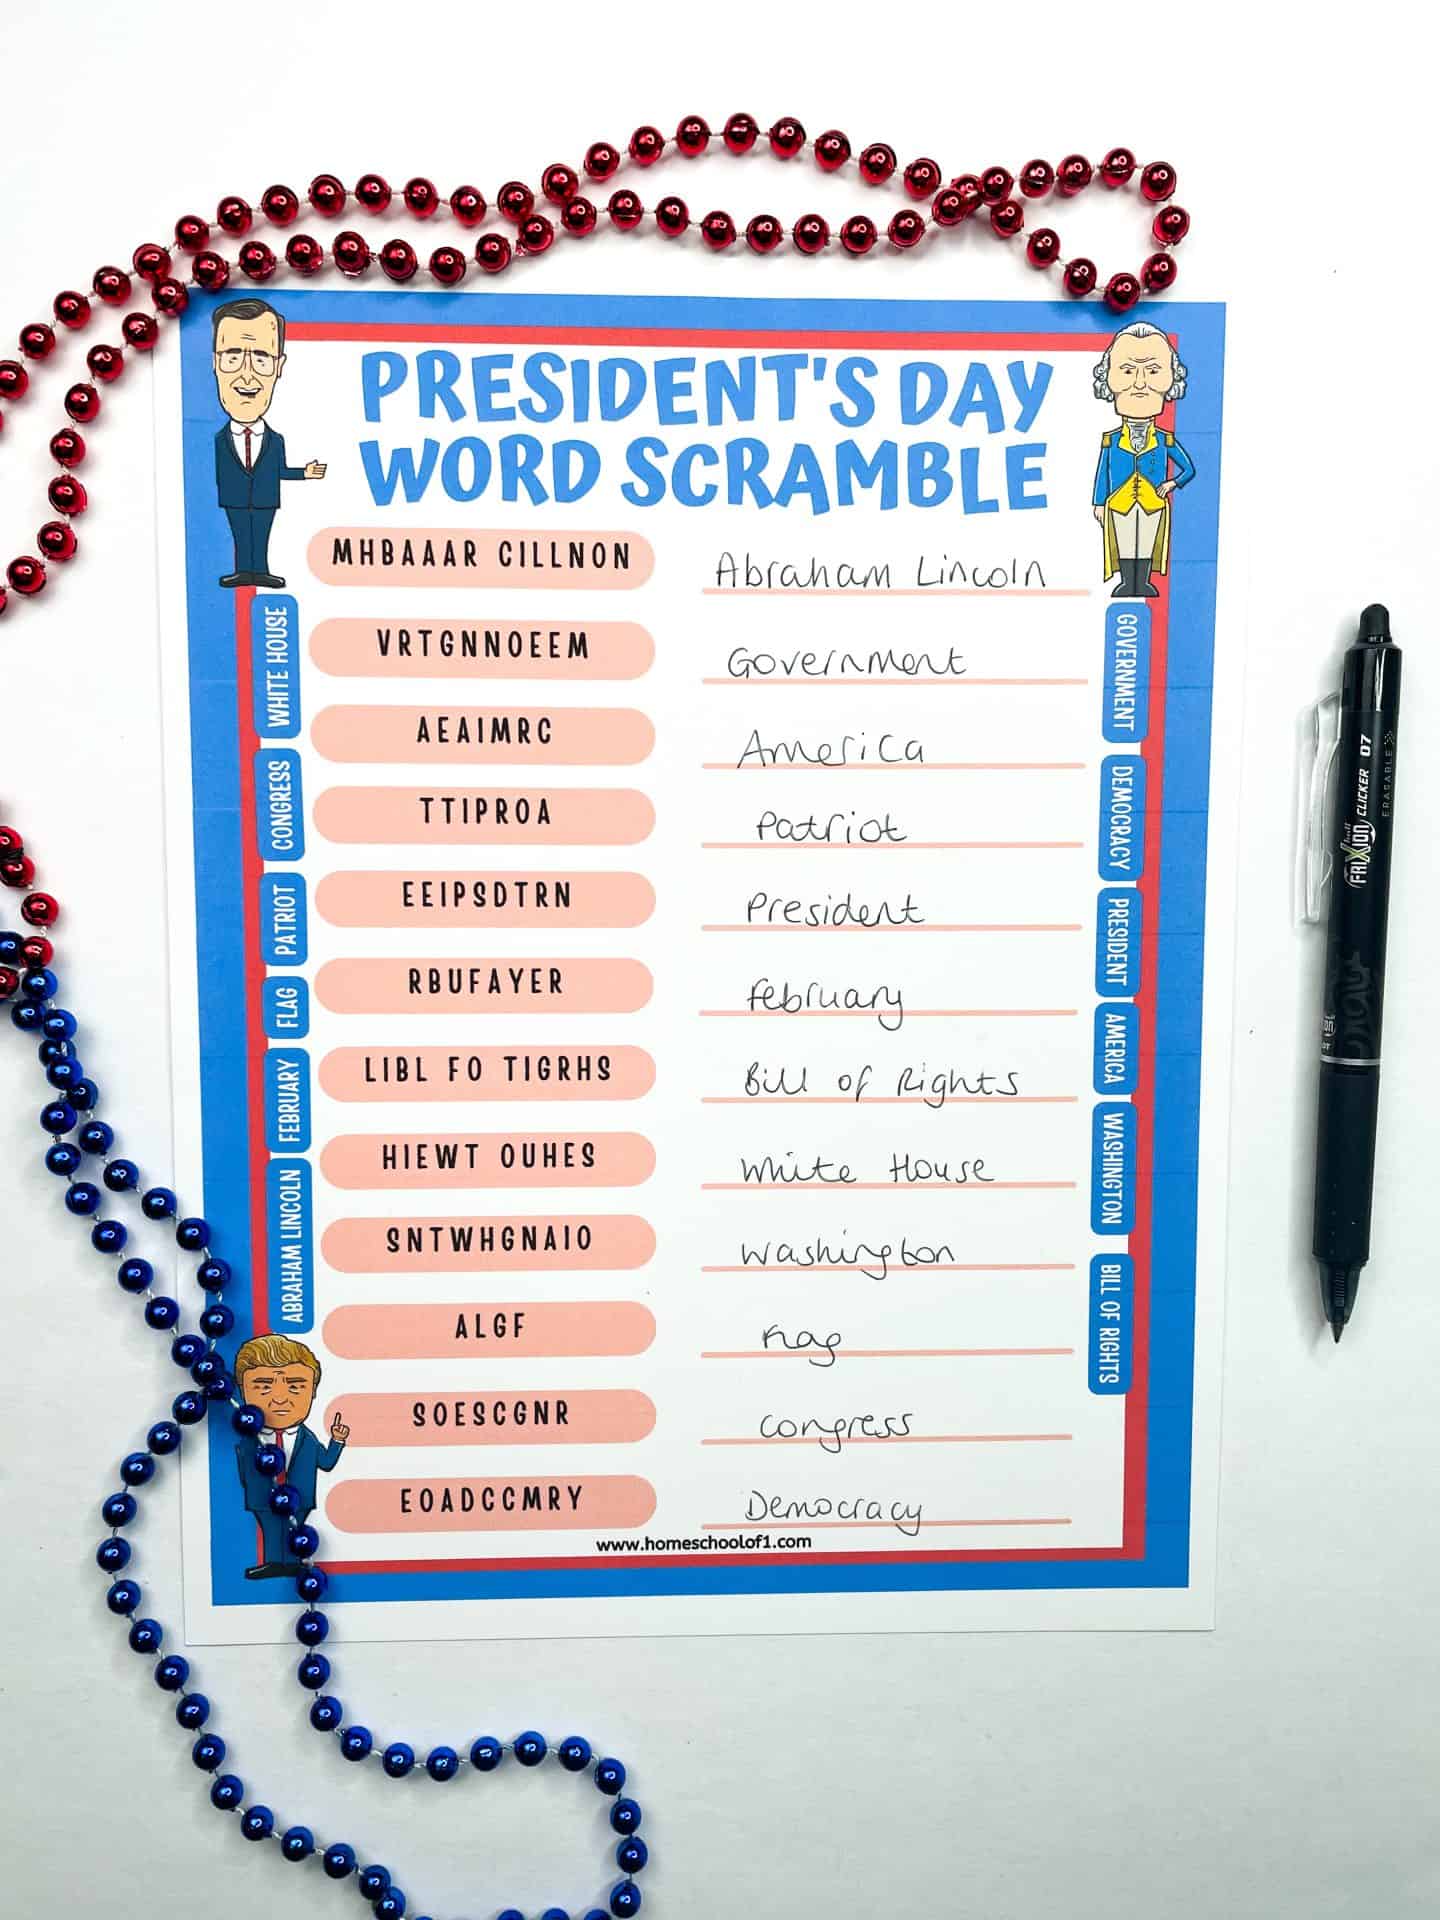 PRESIDENT'S DAY
WORD SCRAMBLE
MHBAAAR CILLNON Abraham Lincoln
VRTGNNOEEM Government
AEAIMRC America
TTIPROA Patriot
EEIPSDTRN President
RBUFAYER February
LIBL FO TIGRHS Bill of Rights
HIEWT OUHES White House
SNTWHGNAIO Washington
ALGF Flag
SOESCGNR Congress
EOADCCMRY Democracy
www.homeschoolof1.com
WHITE HOUSE
CONGRESS
PATRIOT
FLAG
FEBRUARY
ABRAHAM LINCOLN
GOVERNMENT
DEMOCRACY
PRESIDENT
AMERICA
WASHINGTON
BILL OF RIGHTS
FRIXION CLICKER 07
ERASABLE